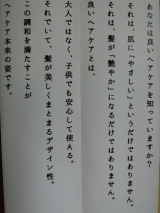 あなたは良いヘアケアを知っていますか？
それは、肌に“やさしい”というだけではありません。
それは、髪が“艶やか”になるだけではありません。
良いヘアケアとは、
大人ではなく、子供でも安心して使える。
それでいて、髪が美しくまとまるデザイン性。
この調和を満たすことが
ヘアケア本来の姿です。